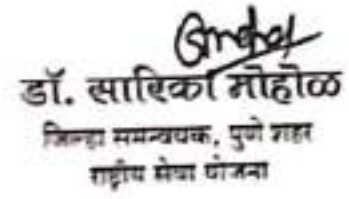 डॉ. सारिका मोहोळ
जिल्हा समन्वयक, पुणे शहर
राष्ट्रीय सेवा योजना